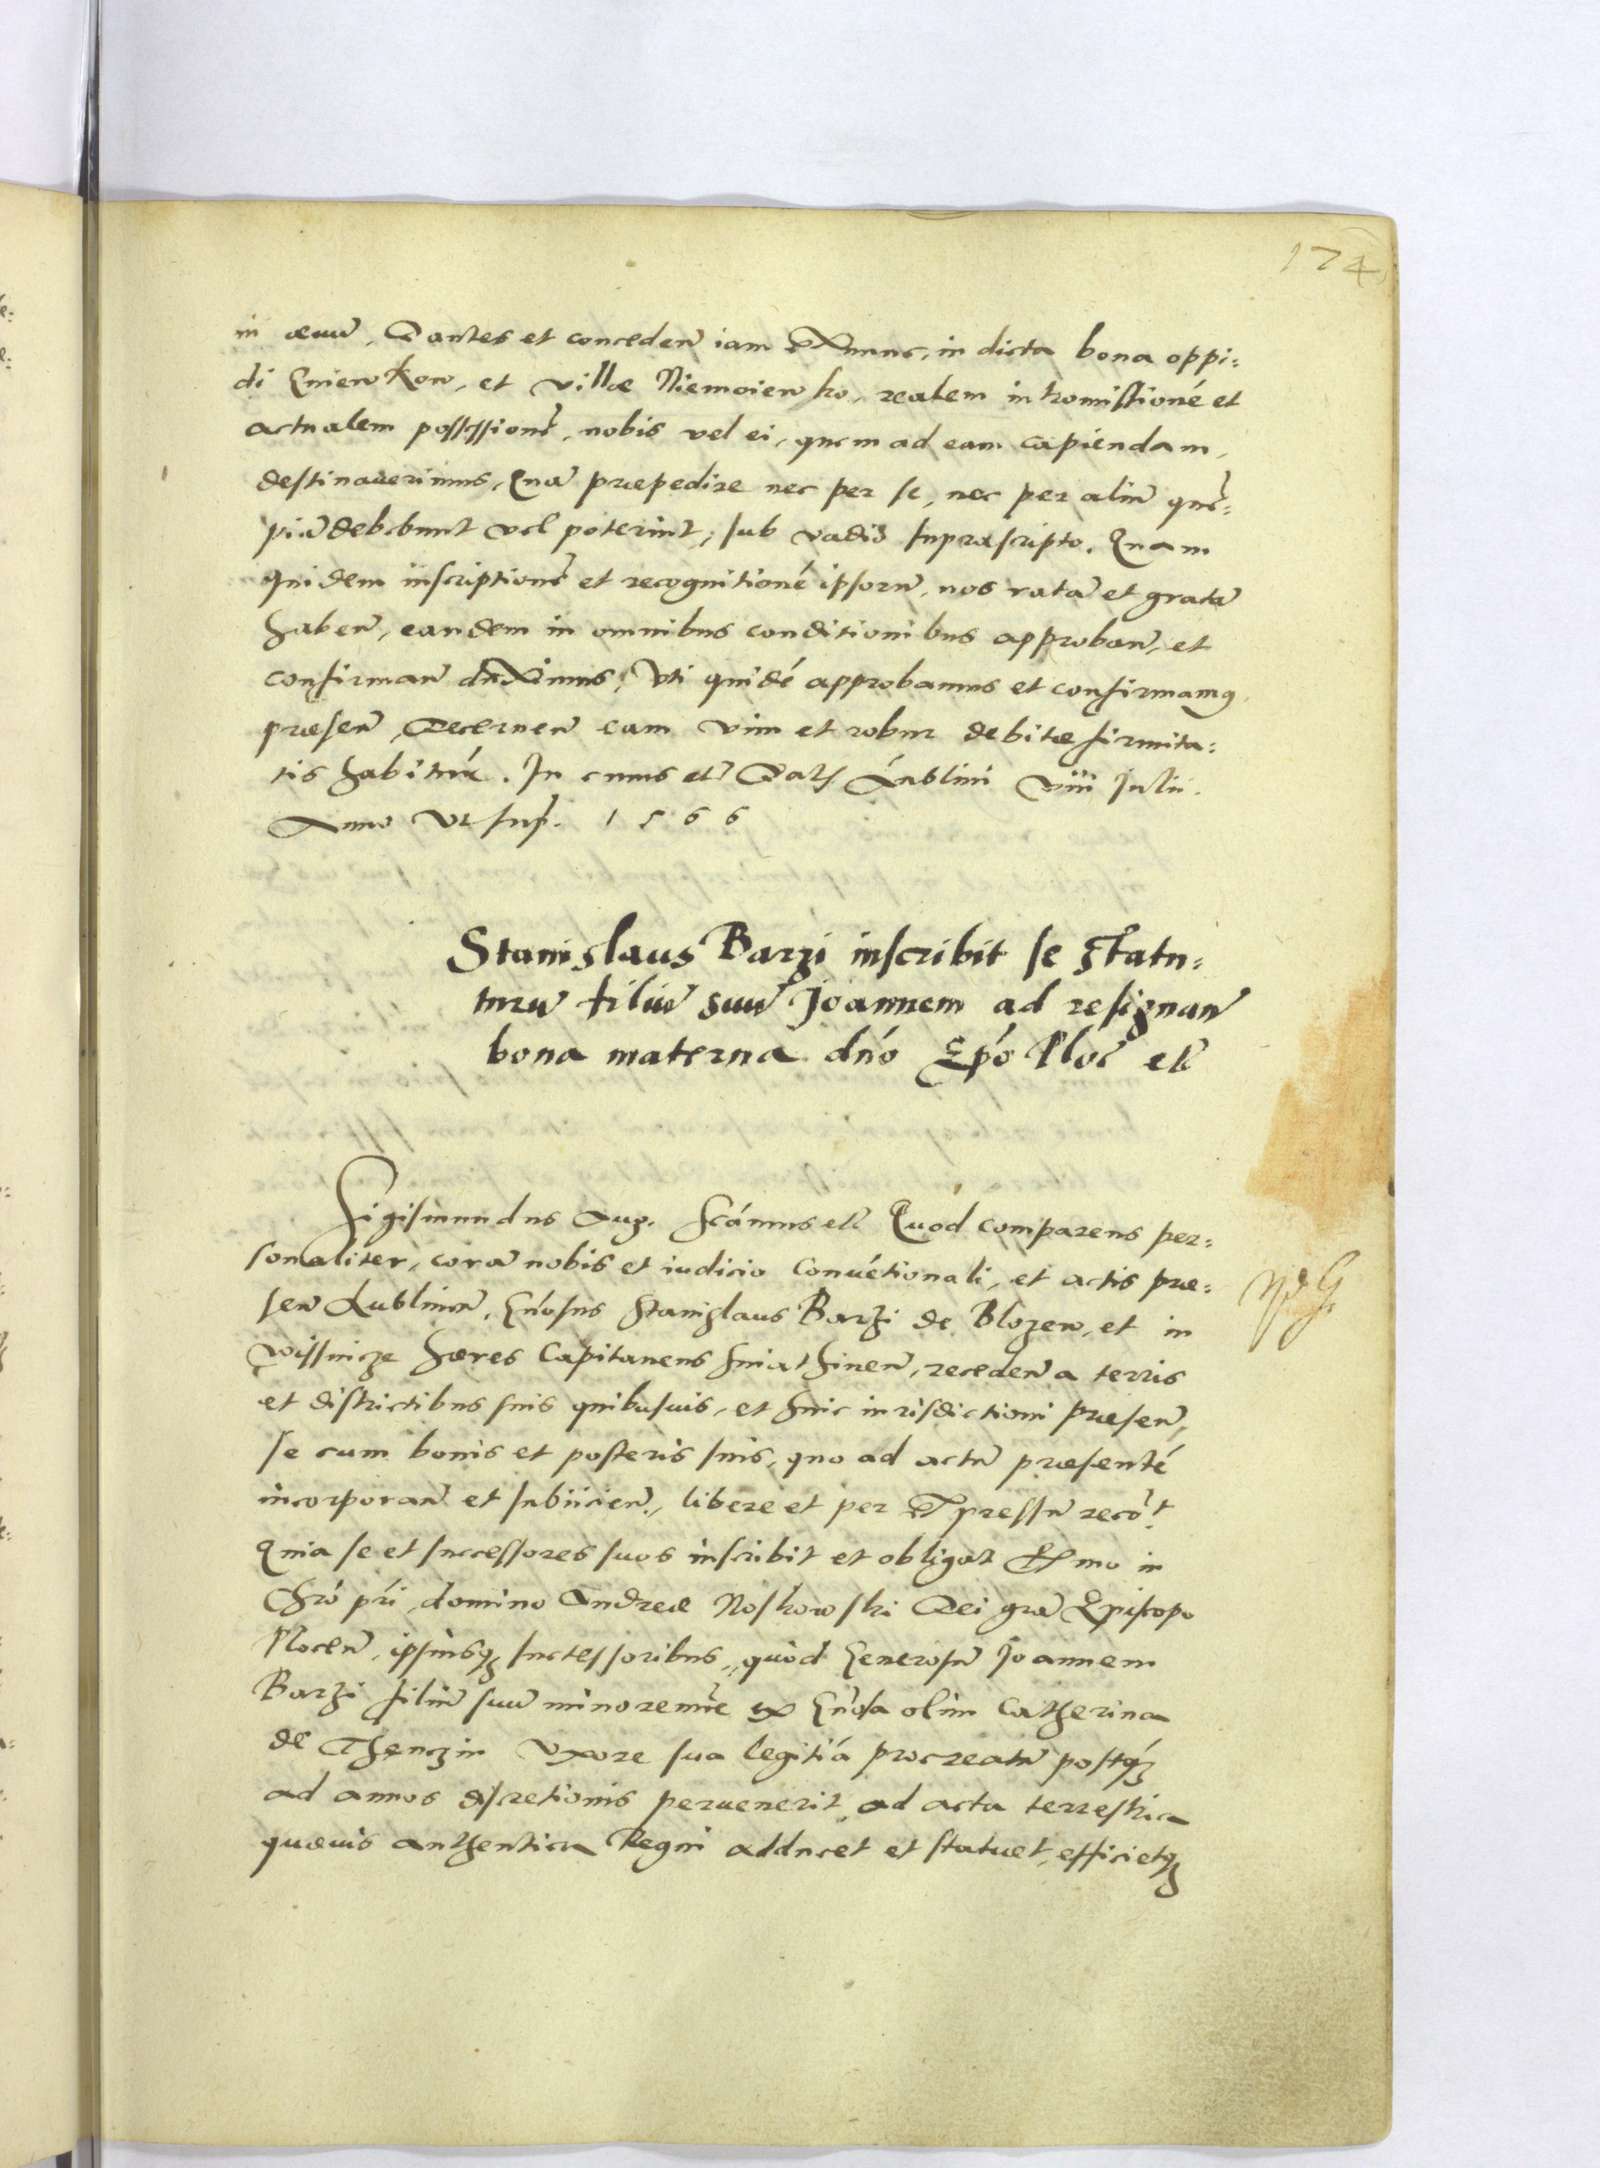 174
in aeuũ, Dantes et conceden̄ iam exnunc, in dicta bona oppi:
di Gniewkow, et villae Niemoiewko, realem intromissioné et
actualem possessionẽ, nobis vel ei, quem ad eam capiendam,
destinauerimus, Quã praepedire nec per se, nec per aliũ quẽ:
piã debebunt vel poterint, sub vadio supraescripto. Quam
quidem inscriptionẽ et recognitioné ipsorũ, nos ratã et gratã
haben̄, eandem in omnibus conditionibus approban̄, et
confirman̄ duximus, Vti quidé approbamus et confirmamꝯ
praesen̄, Decernen̄ eam vim et robur debitae firmita:
tis habiturá. In cuius etc̃ Datꝭ Lublini VIII Julii.
Anno Vt supͬ. 1566
Stanislaus Barzi inscribit se statu:
turũ filiũ suũ Joannem ad resignan̄
bona materna dño Epó Ploc̃ etc̃
Sigismundus Aug. Scámus etc̃ Quod comparens per:
sonaliter, corã nobis et iudicio Conuétionali, et actis prae:
sen̄ Lublinen̄, Gñosus Stanislaus Barzi de Blozew, et in
Wissnicze haeres Capitaneus Sniathinen̄, receden̄ a terris
et districtibus suis quibusuis, et huic iurisdictioni praesen̄,
se cum bonis et posteris suis, quo ad actũ praesenté
incorporan̄ et subiicien̄, libere et per expressũ recõt.
Quia se et successores suos inscribit et obligat Rmo in
Chró pri, domino Andreae Noskowski Dei grã Episcopo
Plocen̄, ipsiusqꝫ successoribus, quòd Generosũ Joannem
Barzi filiũ suũ minorennẽ ex Gñosa olim Catherina
de Thęnczin vxore sua legitiá procreatũ postꝗꝫ
ad annos discretionis peruenerit, ad acta terrestria
quaevis authentica Regni adducet et statuet, efficietqꝫ